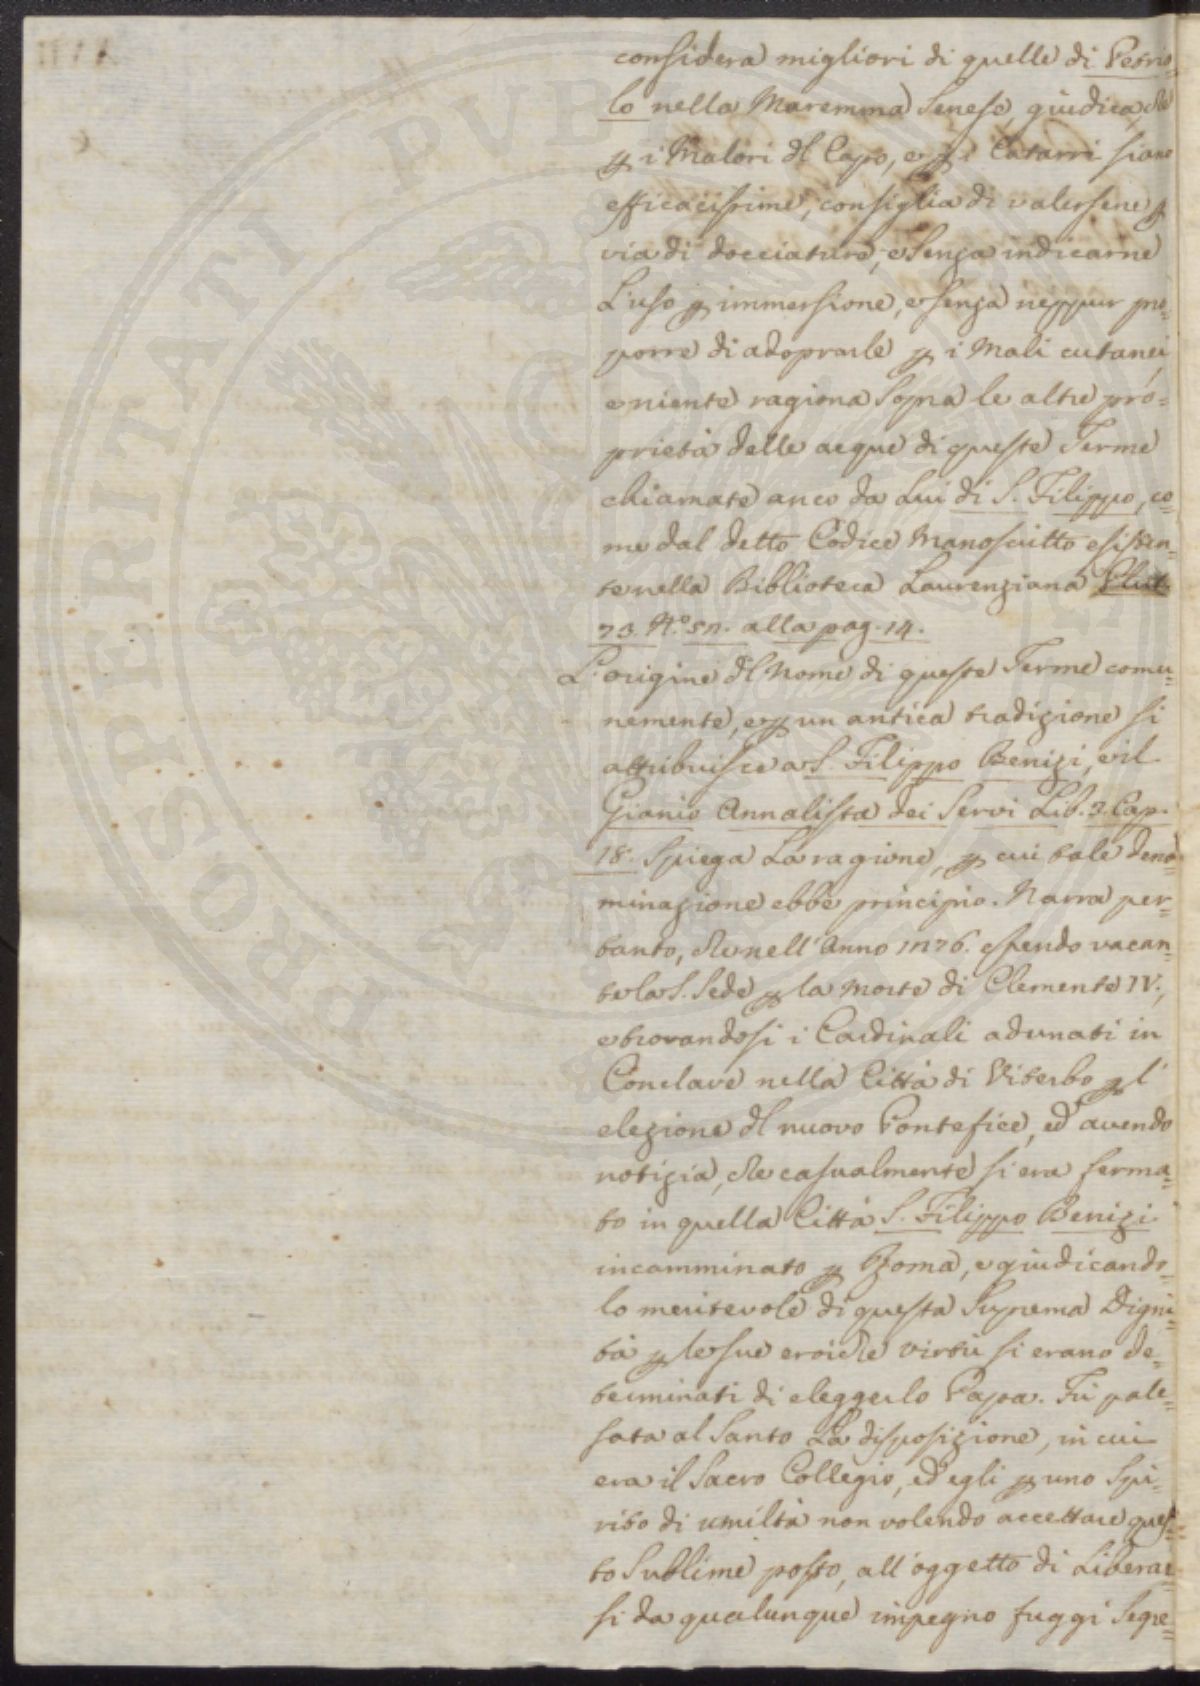 considera migliori di quelle di Petrio=
lo nella Maremma Senese, giudica, che
p i Malori dl Capo, e p i Catarri siano
efficacissime, consiglia di valersene p
via di docciature, e senza indicarne
L'uso p immersione, e senza neppur pro=
porre di adoprarle p i Mali cutanei,
e niente ragiona sopra le altre pro=
prietà delle acque di queste Terme
chiamate anco da Lui di S. Filippo, co=
me dal detto Codice Manoscritto esisten=
te nella Biblioteca Laurenziana Plut.
73. N.º 52. alla pag. 14.
L'origine dl Nome di queste Terme comu=
nemente, e p un antica tradizione si
attribuisce a S. Filippo Benizi, e il
Gianio Annalista dei Servi Lib. 3. Cap.
18. Spiega La ragione, p cui tale deno=
minazione ebbe principio. Narra per=
tanto, che nell'Anno 1276. essendo vacan=
te la S. Sede p la morte di Clemente IV.,
e trovandosi i Cardinali adunati in
Conclave nella Città di Viterbo p l'
elezione dl nuovo Pontefice, ed avendo
notizia, che casualmente si era ferma=
to in quella Città S. Filippo Benizi
incamminato p Roma, e giudicando=
lo meritevole di questa Suprema Digni=
tà p le sue eroiche virtù si erano de=
terminati di eleggerlo Papa. Fù pale=
sata al Santo La disposizione, in cui
era il Sacro Collegio, ed egli p uno Spi=
rito di umiltà non volendo accettare ques=
to Sublime posto, all'oggetto di Liberar=
si da qualunque impegno fuggì Segre=
PROSPERITATI PVBL